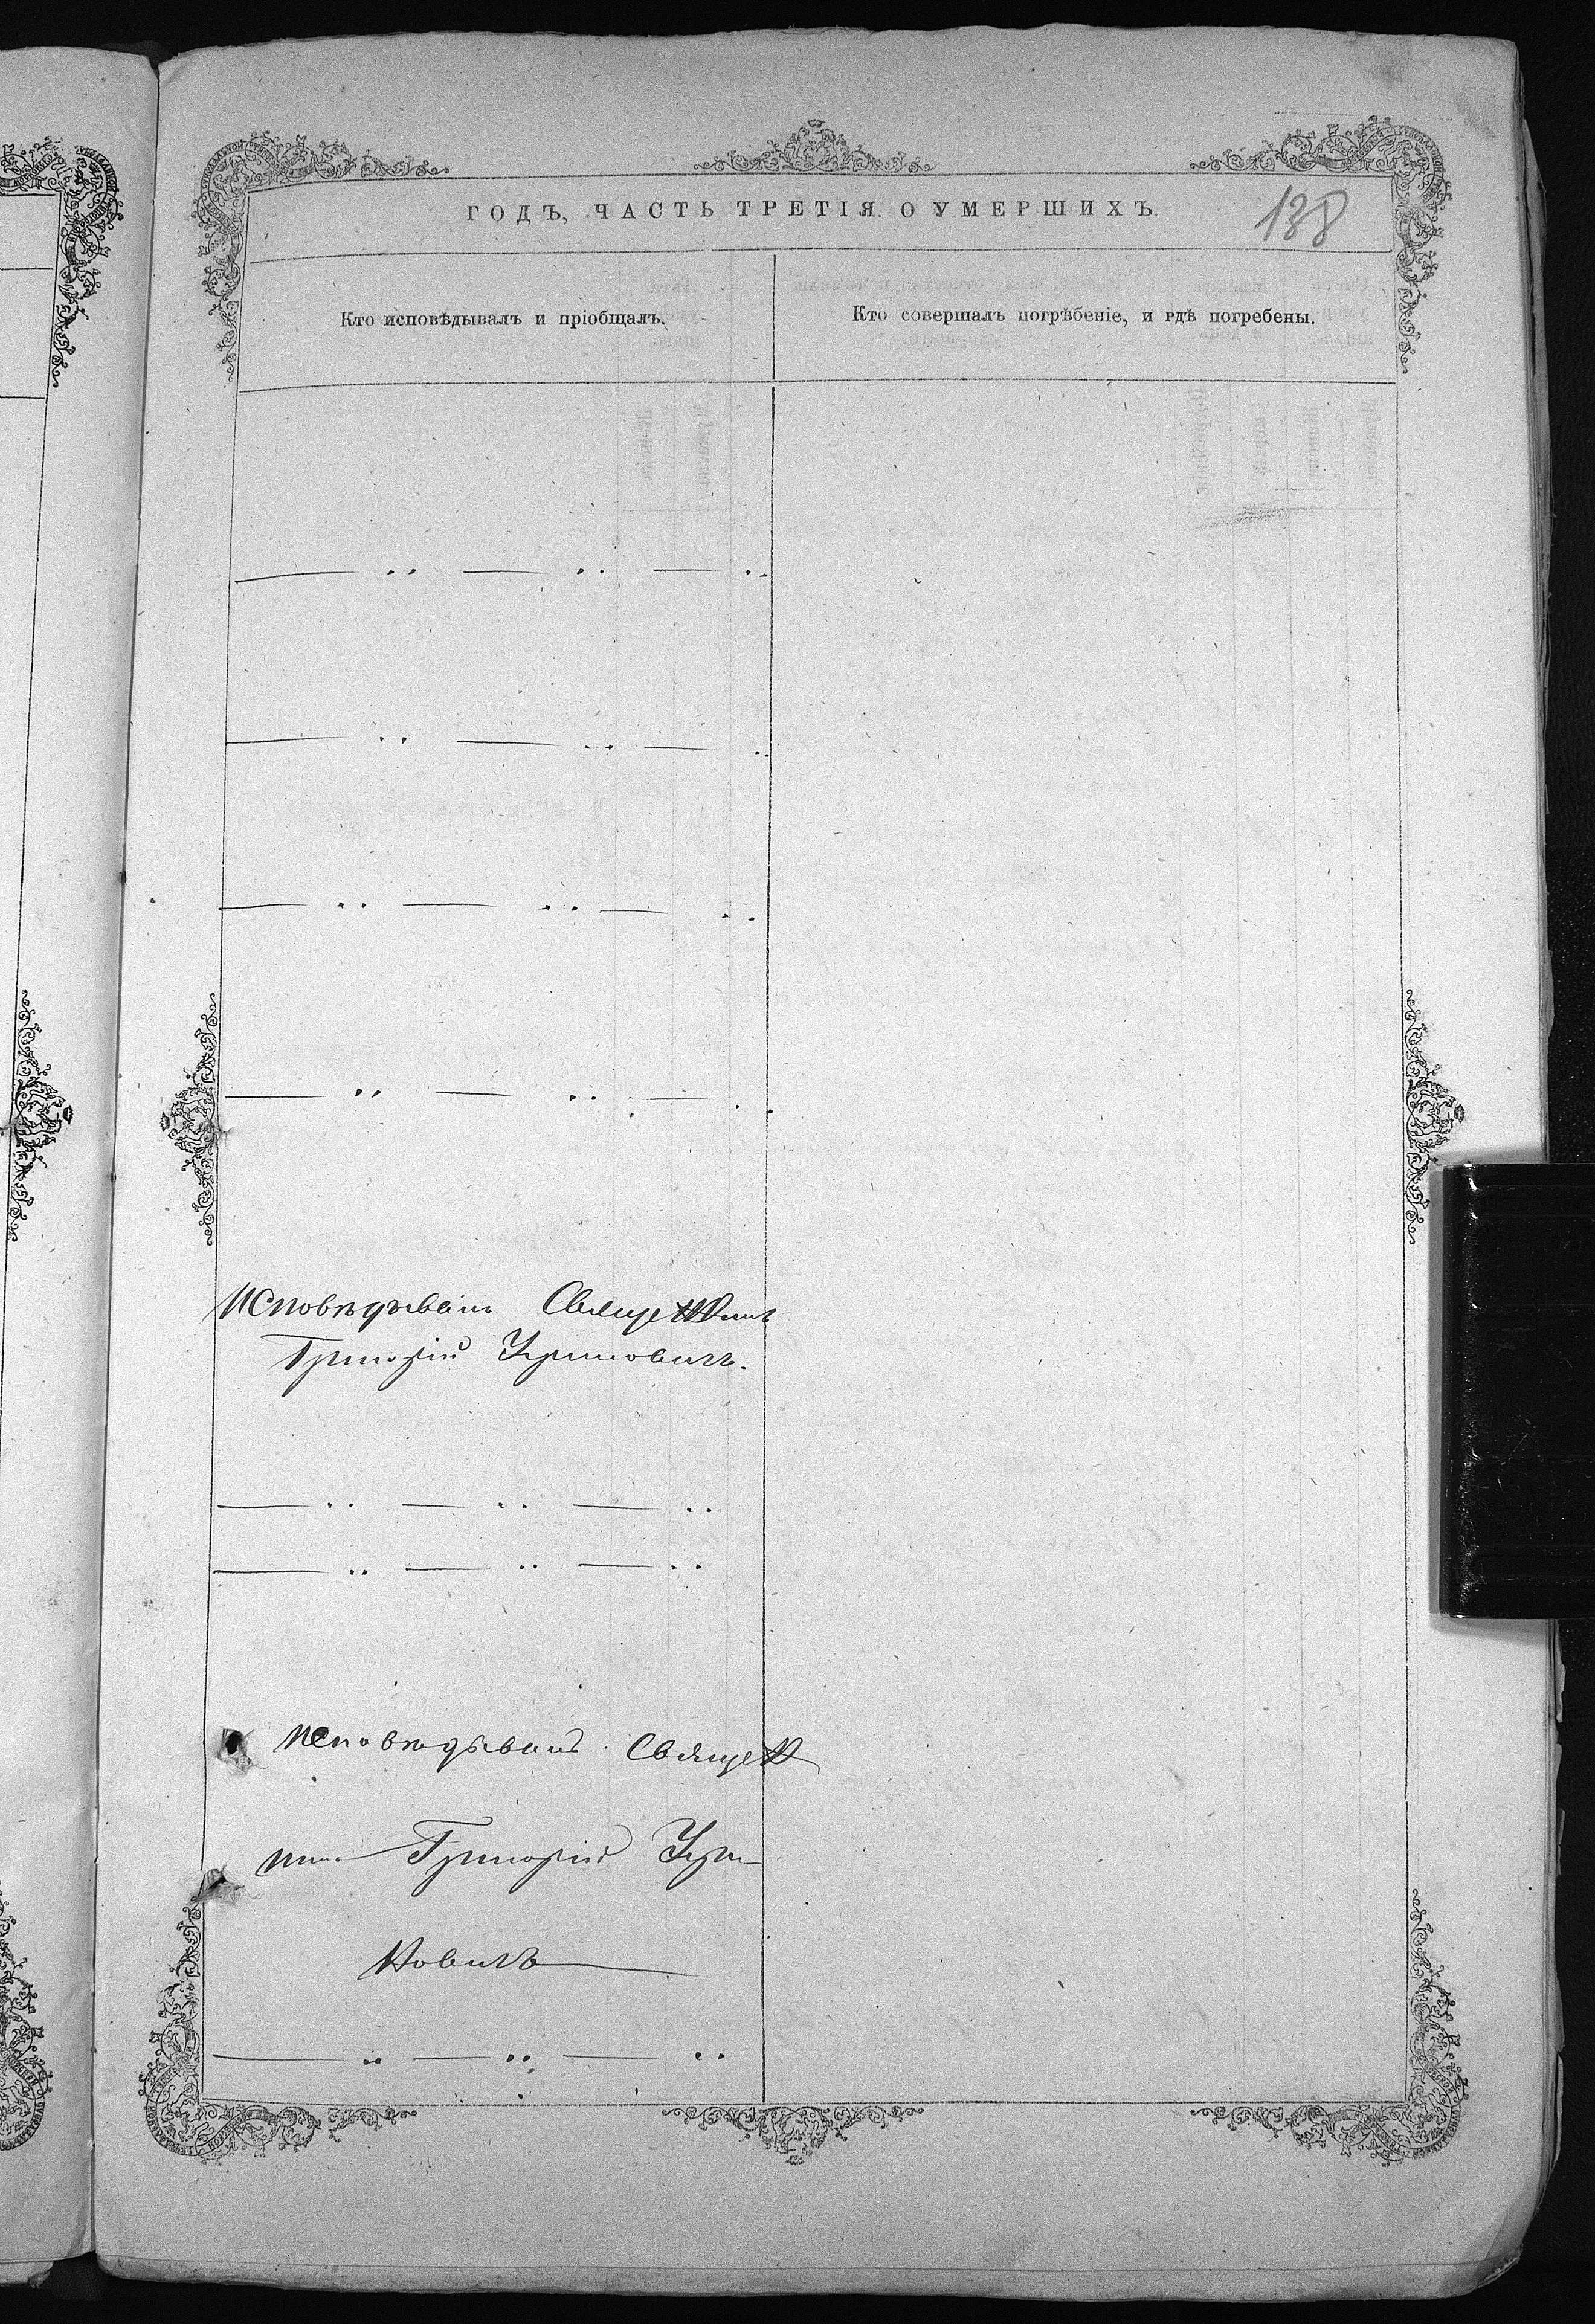 ГОДЪ, ЧАСТЬ ТРЕТІЯ. О УМЕРШИХЪ.
138
Кто исповѣдывалъ и пріобщалъ.
Кто совершалъ погрѣбеніе, и гдѣ погребены.
— ,, — ,, — ,,
— ,, — ,, — ,,
— ,, — ,, — ,,
— ,, — ,, — ,,
Исповѣдывалъ Священникъ
Григорій
— ,, — ,, — ,,
— ,, — ,, — ,,
Исповѣдывалъ Священ
никъ Григорій
новичъ
— ,, — ,, — ,,